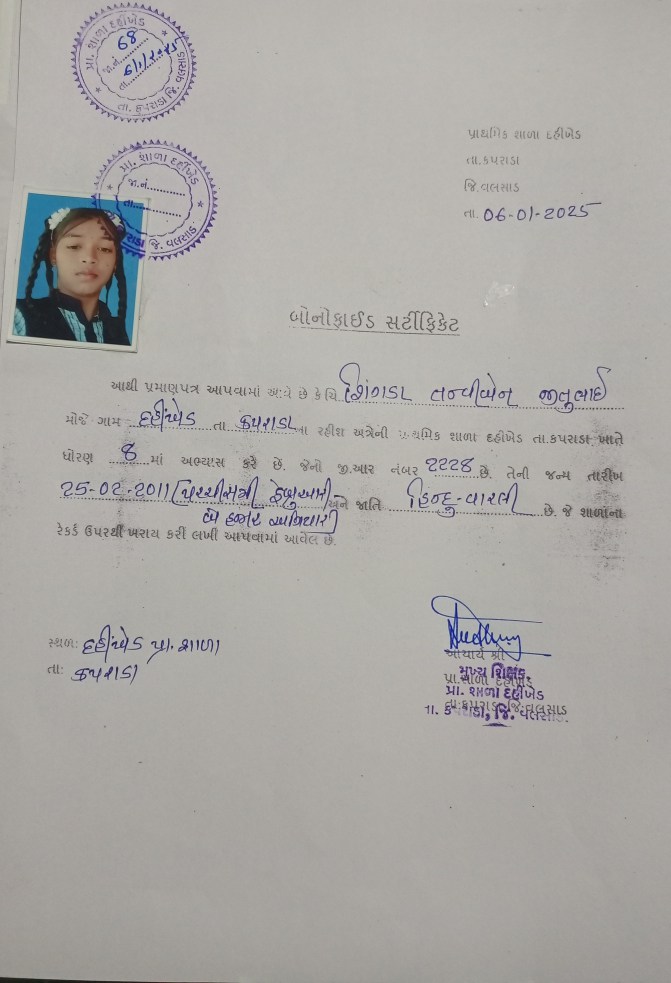 પ્રા. શાળા દહીંખેડ
જા.નં. 68
તા. 6/1/2025
તા. કપરાડા જિ. વલસાડ
પ્રા. શાળા દહીંખેડ
જા.નં............
તા.............
કપરાડા જિ. વલસાડ
પ્રાથમિક શાળા દહીખેડ
તા.કપરાડા
જિ.વલસાડ
તા. 06-01-2025
બોનોફાઈડ સર્ટીફિકેટ
આથી પ્રમાણપત્ર આપવામાં આવે છે કે ચિ. શિંગડા તન્વીબેન જીતુભાઈ
મોજે ગામ દહીંખેડ તા કપરાડા ના રહીશ અત્રેની પ્રાથમિક શાળા દહીખેડ તા.કપરાડા ખાતે
ધોરણ 8 માં અભ્યાસ કરે છે. જેનો જી.આર નંબર 2228 છે. તેની જન્મ તારીખ
25-02-2011 (પચ્ચીસમી ફેબ્રુઆરી અને જાતિ હિન્દુ-વારલી છે. જે શાળાના
બે હજાર અગિયાર)
રેકર્ડ ઉપરથી ખરાય કરી લખી આપવામાં આવેલ છે.
સ્થળ: દહીંખેડ પ્રા. શાળા
તા: કપરાડા
આચાર્ય શ્રી
મુખ્ય શિક્ષક,
પ્રા.શાળા દહીખેડ
પ્રા. શાળા દહીંખેડ
તા.કપરાડા,જિ.વલસાડ
તા. કપરાડા, જિ. વલસાડ.